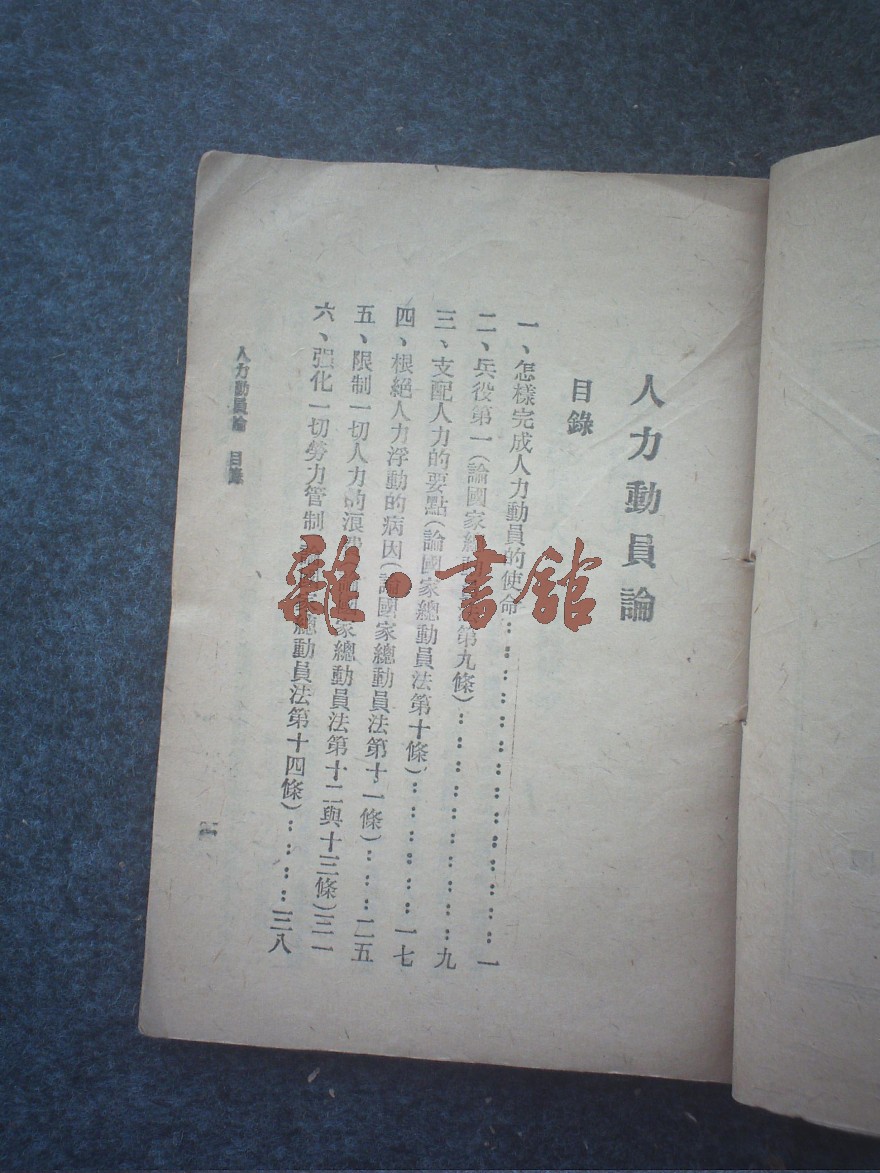 人力動員論
目錄
一、怎樣完成人力動員的使命‥‥‥‥‥‥‥‥‥‥‥‥‥‥一
二、兵役第一(論國家總 第九條)‥‥‥‥‥‥‥‥‥‥九
三、支配人力的要點(論國家總動員法第十條)‥‥‥‥‥‥一七
四、根絕人力浮動的病因(論國家總動員法第十一條)‥‥‥二五
五、限制一切人力的浪 家總動員法第十二與十三條)三一
六、强化一切勞力管制 總動員法第十四條)‥‥‥‥三八
人力動員論 目錄
一
雜·書館